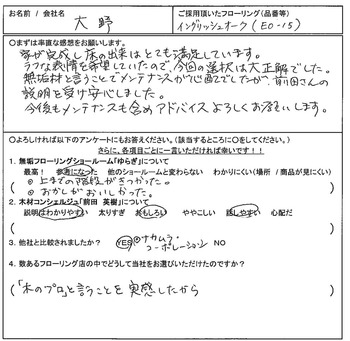 お名前 / 会社名
大野
ご採用頂いたフローリング(品番等)
イングリッシュオーク (EO-15)
○まずは率直な感想をお願いします。
家が完成し床の出来はとても満足しています。
ラフな表情を希望していたので、今回の選択は大正解でした。
無垢材と言うことでメンテナンスが心配でしたが、前田さんの
説明を受け安心しました。
今後もメンテナンスも含めアドバイスよろしくお願いします。
○よろしければ以下のアンケートにもお答えください。(該当するところに○をしてください。)
さらに、各項目ごとに一言いただければ幸いです!!
1. 無垢フローリングショールーム「ゆらぎ」について
最高! 参考になった 他のショールームと変わらない わかりにくい(場所 / 商品が見にくい)
上までの階段がきつかった。
おかしがおいしかった。
2. 木材コンシェルジュ「前田 英樹」について
説明はわかりやすい 太りすぎ おもしろい ややこしい 話しやすい 心配だ
3. 他社と比較されましたか? YES ナカムラ・コーポレーション NO
4. 数あるフローリング店の中でどうして当社をお選びいただけたのですか?
(「木のプロ」と言うことを実感したから )